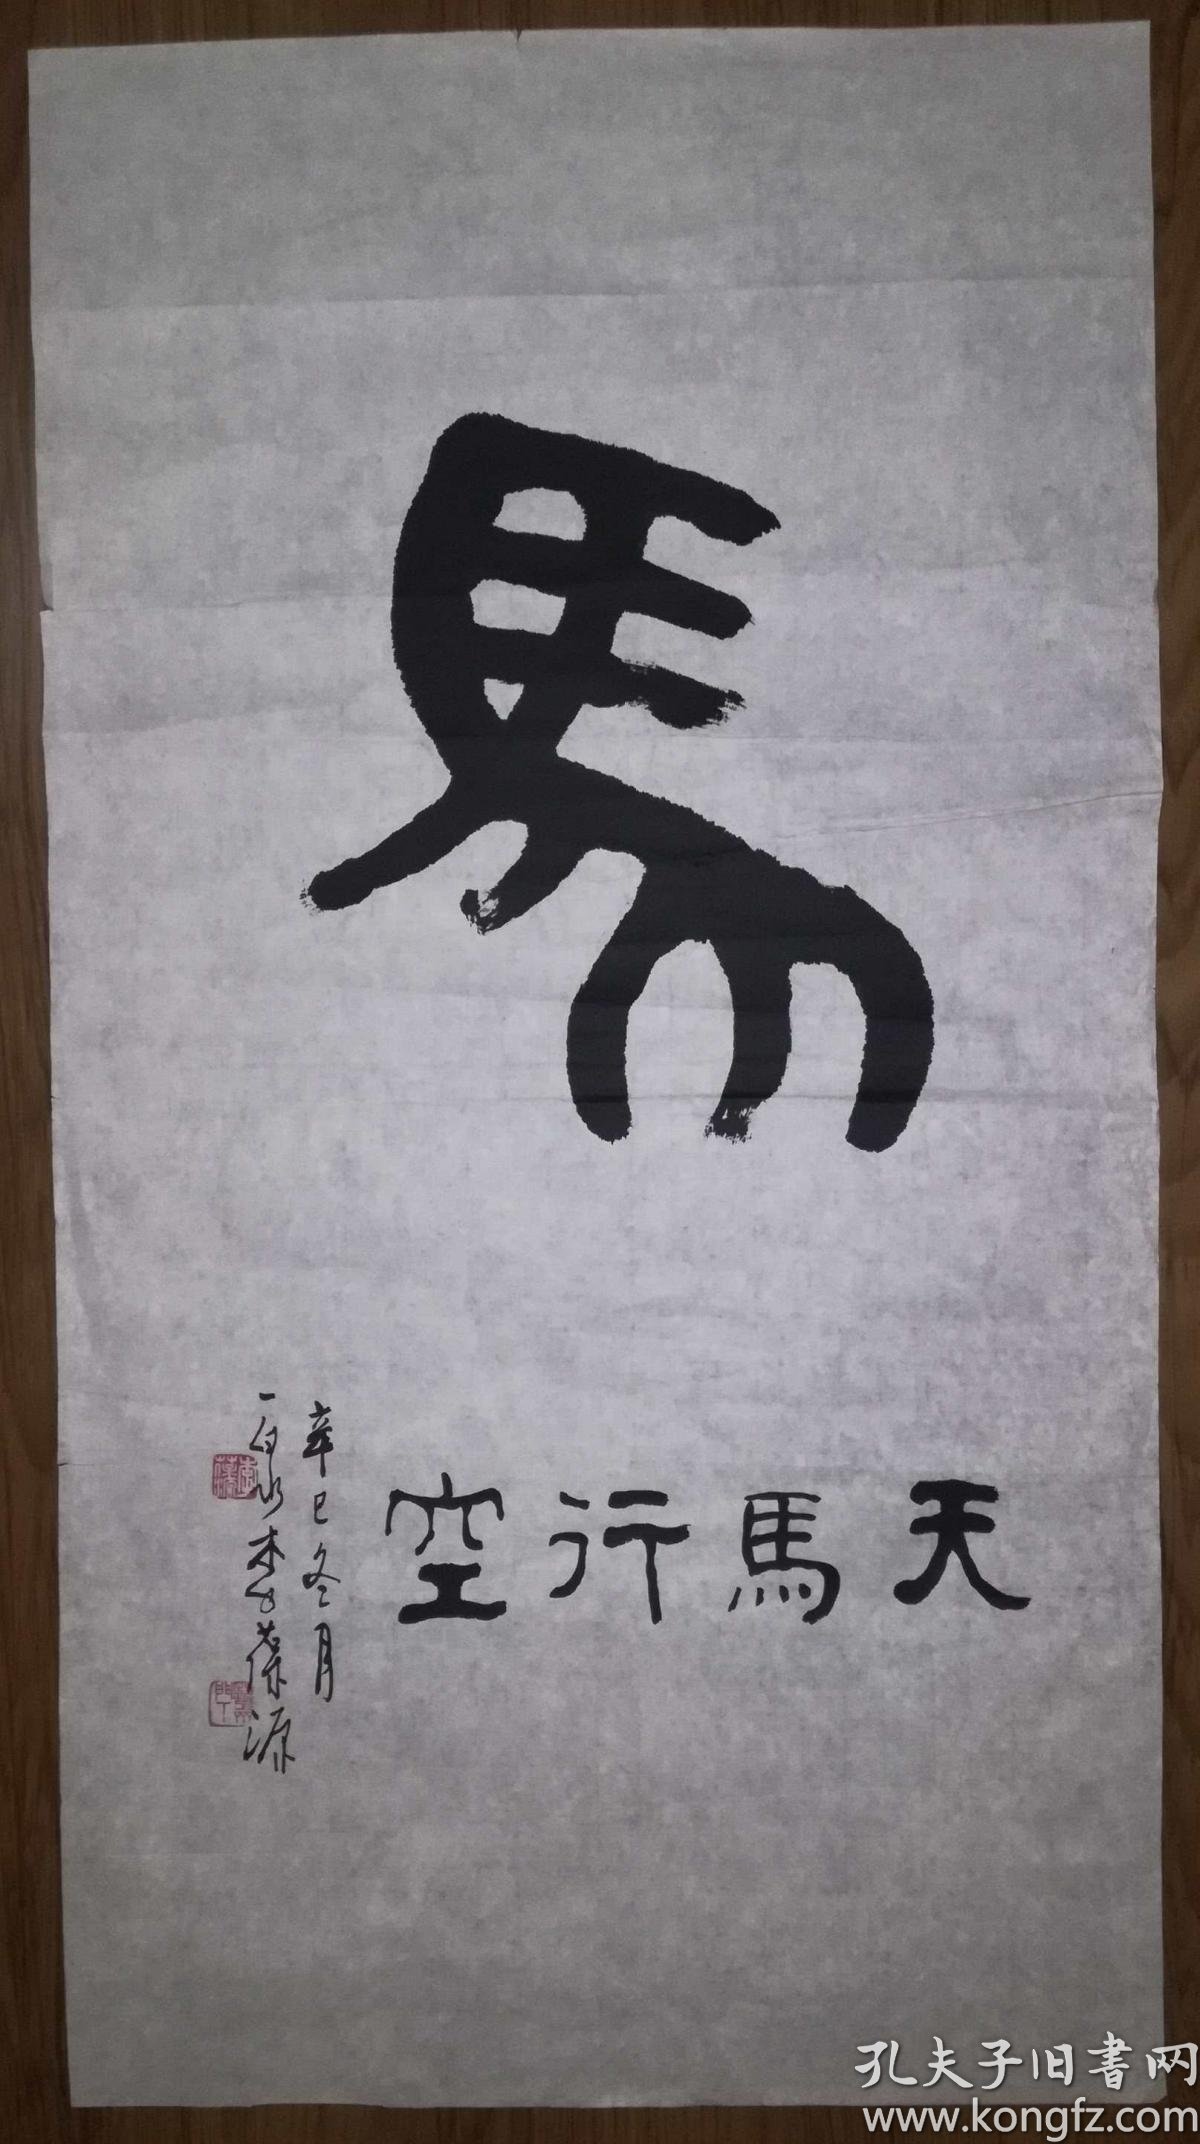 馬
天馬行空
辛巳冬月
李葆源
孔夫子旧書网
www.kongfz.com